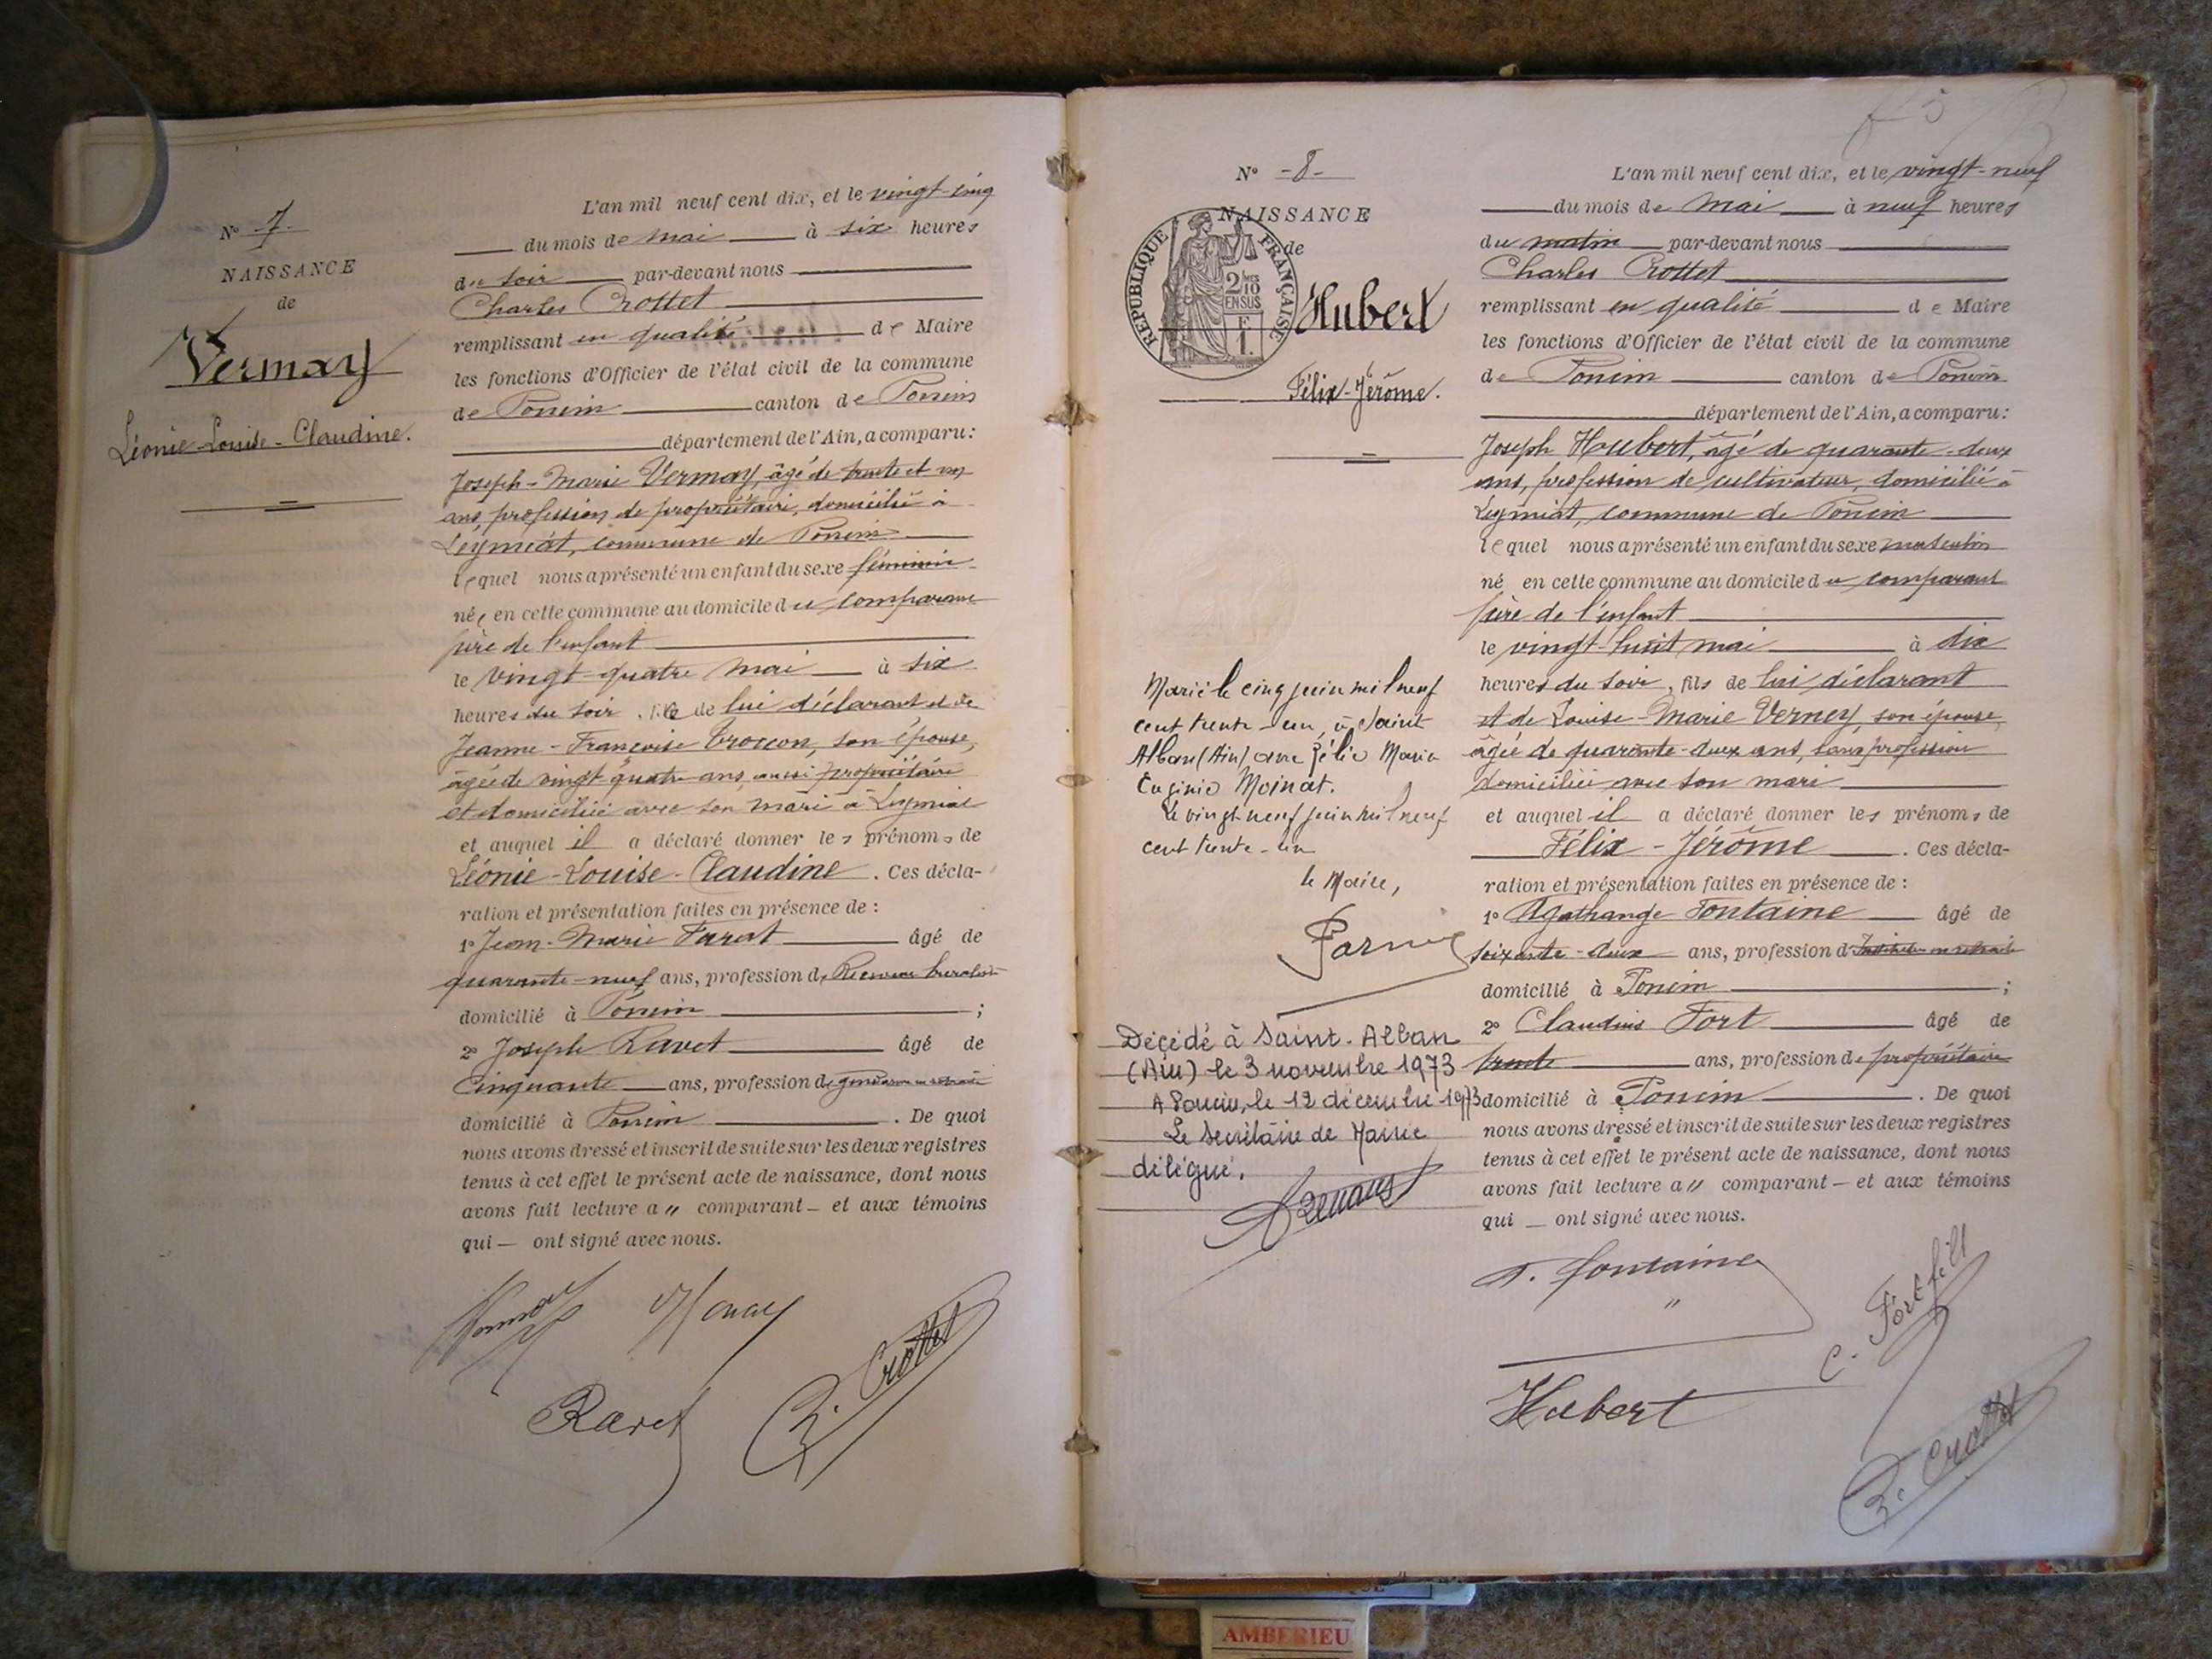 N° 7
NAISSANCE
de
Vermay
Léonie-Louise-Claudine.
L'an mil neuf cent dix, et le vingt-cinq
du mois de Mai à six heures
du soir par-devant nous
Charles Crottet
remplissant en qualité de Maire
les fonctions d'Officier de l'état civil de la commune
de Poncin canton de Poncin
département de l'Ain, a comparu:
Joseph-Marie Vermay, âgé de trente et un
ans, profession de propriétaire, domicilié à
Leymiat, commune de Poncin
lequel nous a présenté un enfant du sexe féminin
née en cette commune au domicile du comparant
père de l'enfant
le vingt-quatre mai à six
heures du soir, fille de lui déclarant et de
Jeanne-Françoise Troccon, son épouse,
âgée de vingt quatre ans, aussi propriétaire
et domiciliée avec son mari à Leymiat
et auquel il a déclaré donner les prénoms de
Léonie-Louise-Claudine. Ces décla-
ration et présentation faites en présence de :
1° Jean-Marie Farat âgé de
quarante-neuf ans, profession de Receveur buraliste
domicilié à Poncin ;
2° Joseph Ravet âgé de
Cinquante ans, profession de gendarme en retraite
domicilié à Poncin. De quoi
nous avons dressé et inscrit de suite sur les deux registres
tenus à cet effet le présent acte de naissance, dont nous
avons fait lecture au comparant – et aux témoins
qui – ont signé avec nous.
Ravet
C. Crottet
N° -8-
NAISSANCE
de
RÉPUBLIQUE FRANÇAISE
2/10
EN SUS
Hubert
Félix-Jérôme.
Marié le cinq juin mil neuf
cent trente-un, à Saint
Alban (Ain) avec Zélie Marie
Eugénie Moinat.
Le vingt neuf juin mil neuf
cent trente-un
le Maire,
Décédé à Saint-Alban
(Ain) le 3 novembre 1973
A Poncin, le 12 décembre 1973
Le Secrétaire de Mairie
délégué,
L'an mil neuf cent dix, et le vingt-neuf
du mois de Mai à neuf heures
du matin par-devant nous
Charles Crottet
remplissant en qualité de Maire
les fonctions d'Officier de l'état civil de la commune
de Poncin canton de Poncin
département de l'Ain, a comparu:
Joseph Hubert, âgé de quarante-deux
ans, profession de cultivateur, domicilié à
Leymiat, commune de Poncin
lequel nous a présenté un enfant du sexe masculin
né en cette commune au domicile du comparant
père de l'enfant
le vingt-huit mai à dix
heures du soir, fils de lui déclarant
et de Louise-Marie Verney, son épouse,
âgée de quarante-deux ans, sans profession
domiciliée avec son mari
et auquel il a déclaré donner les prénoms de
Félix-Jérôme. Ces décla-
ration et présentation faites en présence de :
1° Agathange Fontaine âgé de
soixante-deux ans, profession d'Instituteur en retraite
domicilié à Poncin ;
2° Claudius Fort âgé de
trente ans, profession de propriétaire
domicilié à Poncin. De quoi
nous avons dressé et inscrit de suite sur les deux registres
tenus à cet effet le présent acte de naissance, dont nous
avons fait lecture au comparant – et aux témoins
qui – ont signé avec nous.
A. Fontaine
C. Fort fils
Hubert
C. Crottet
AMBERIEU